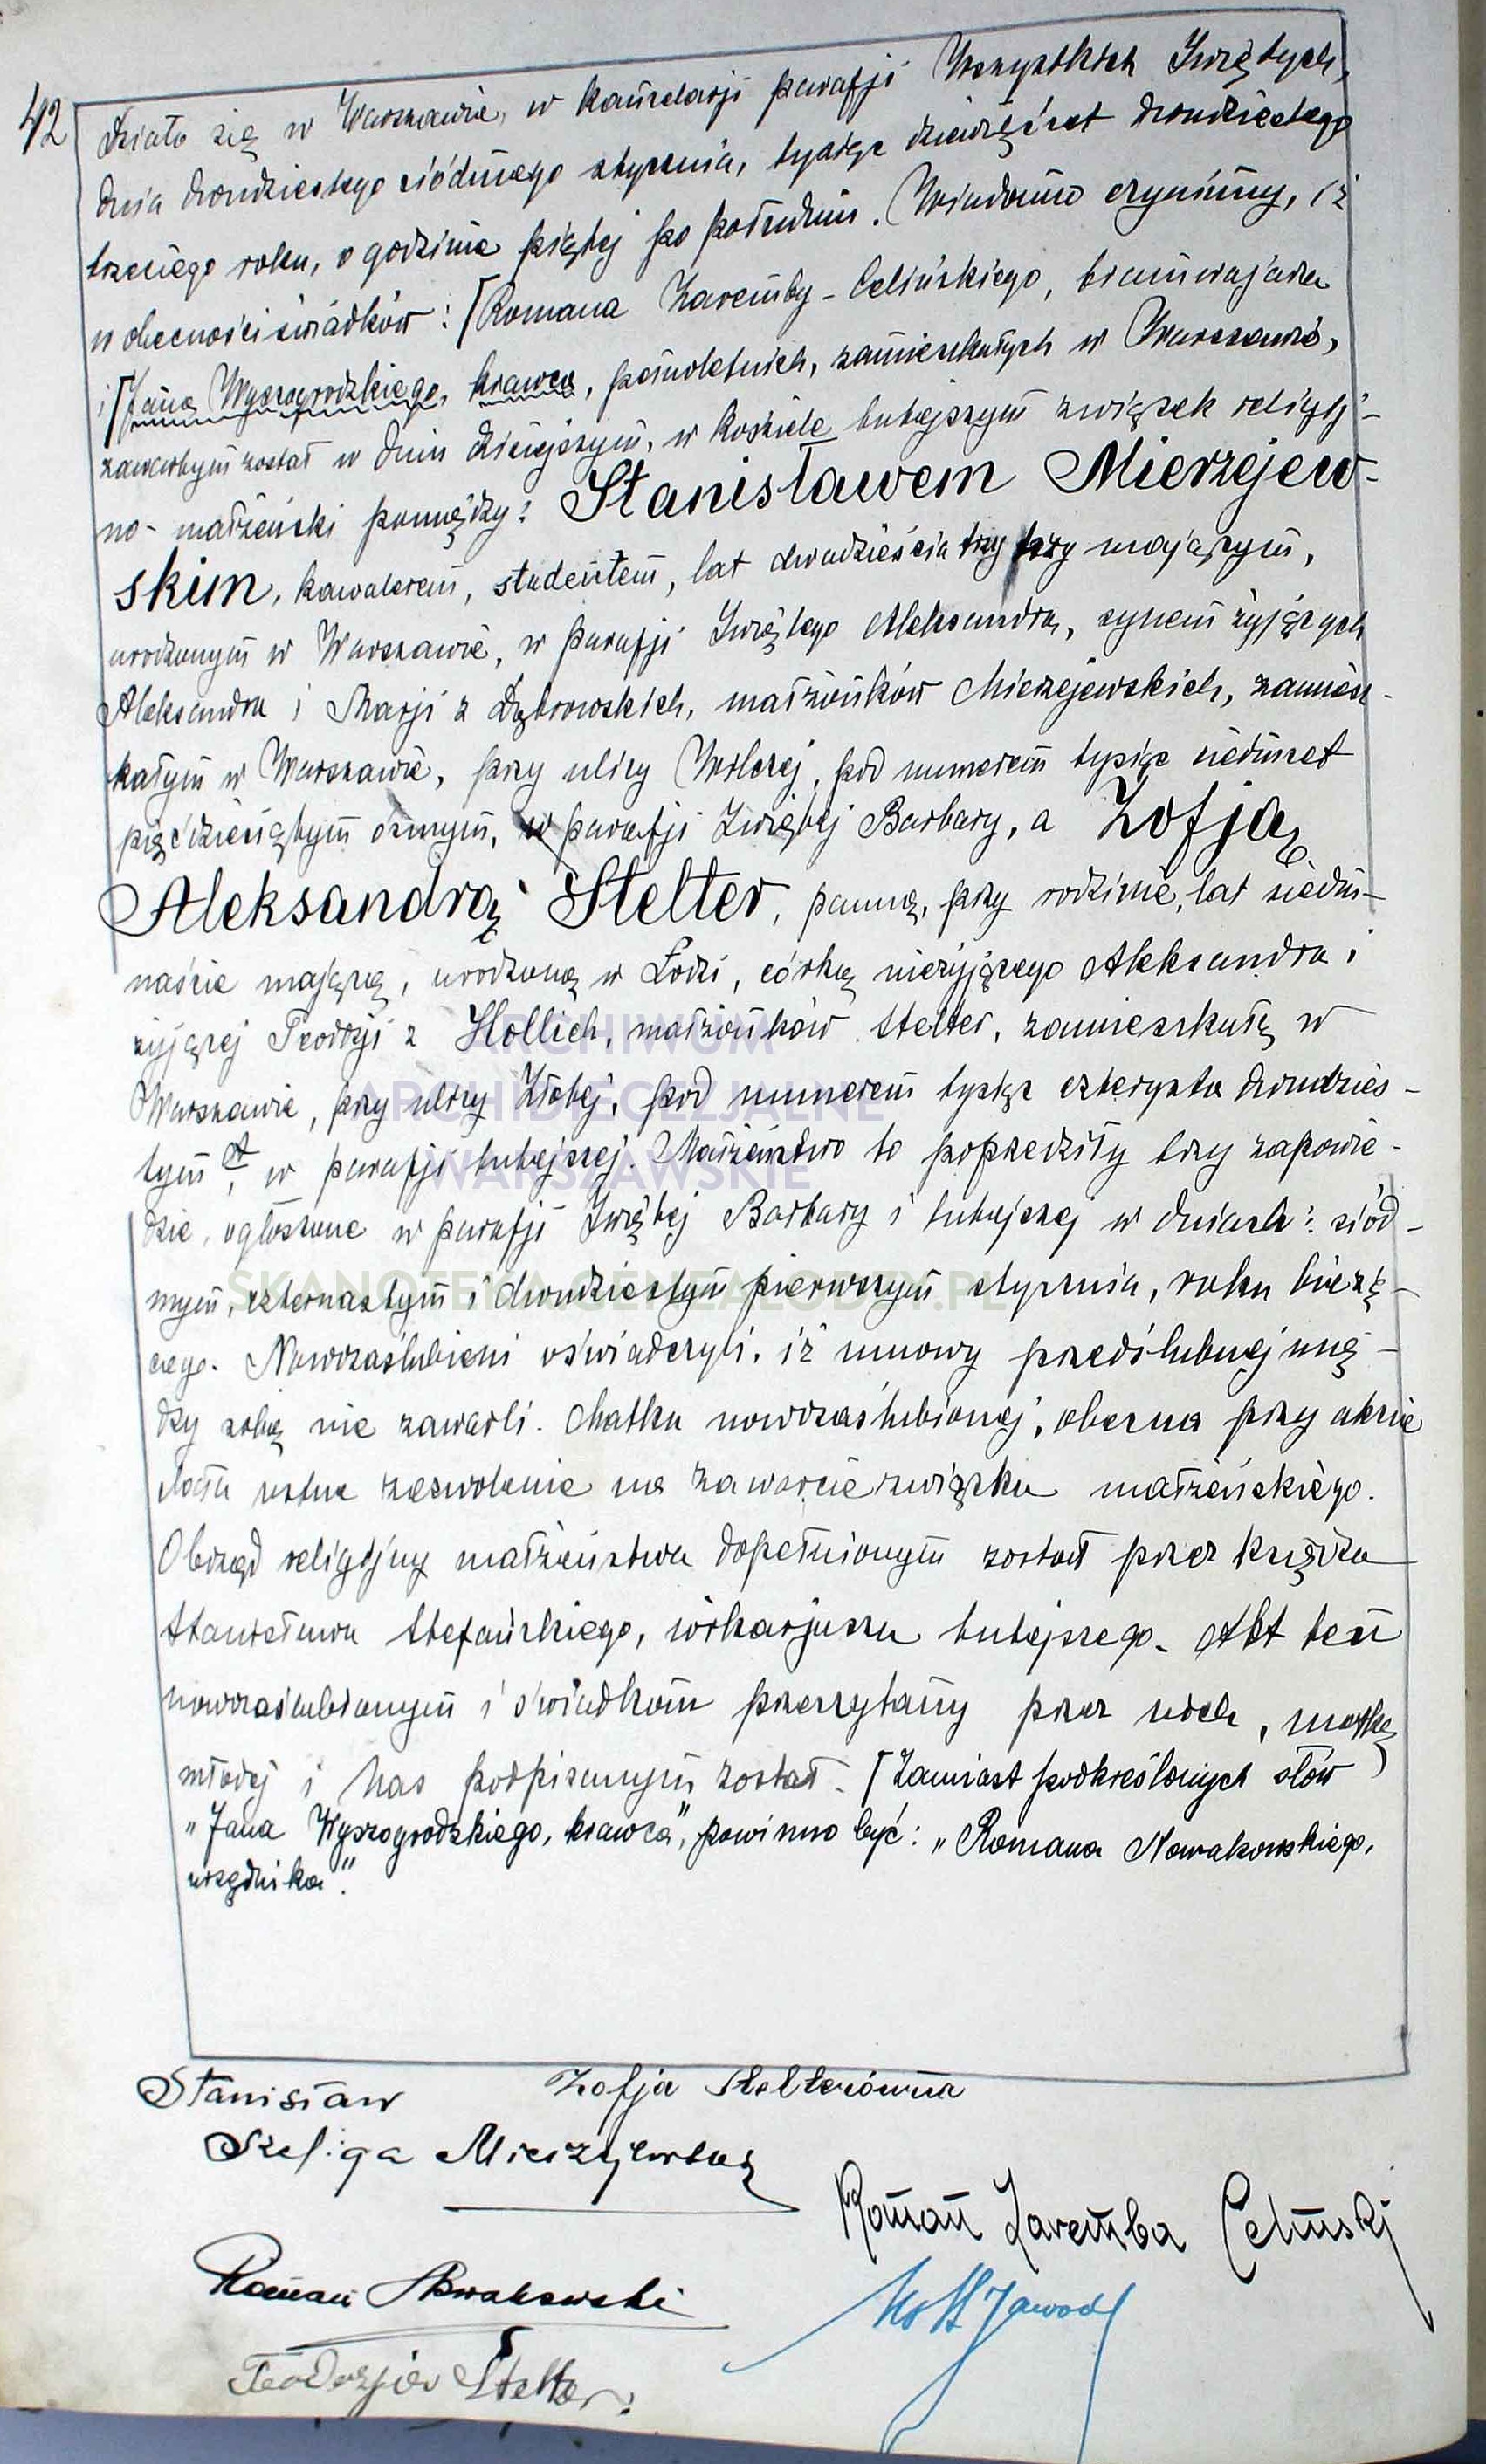 42
Działo się w Warszawie, w kancelarji parafji Wszystkich Świętych,
dnia dwudziestego siódmego stycznia, tysiąc dziewięćset dwudziestego
trzeciego roku, o godzinie piątej po południu. Wiadomo czynimy, iż
w obecności świadków: [Romana Zaremby-Celińskiego, tramwajarza
i [Jana Wyszogrodzkiego, krawca, pełnoletnich, zamieszkałych w Warszawie,
zawartym został w dniu dzisiejszym, w kościele tutejszym związek religij-
no-małżeński pomiędzy: Stanisławem Mierzejew-
skim, kawalerem, studentem, lat dwadzieścia trzy mającym,
urodzonym w Warszawie, w parafji Świętego Aleksandra, synem żyjących
Aleksandra i Marji z Dąbrowskich, małżonków Mierzejewskich, zamiesz-
kałym w Warszawie, przy ulicy Wilczej, pod numerem tysiąc siedmset
pięćdziesiątym ósmym, w parafji Świętej Barbary, a Zofją
Aleksandrą Stelter, panną, przy rodzinie, lat siedm-
naście mającą, urodzoną w Łodzi, córką nieżyjącego Aleksandra i
żyjącej Teodozji z Hollich, małżonków Stelter, zamieszkałą w
Warszawie, przy ulicy Złotej, pod numerem tysiąc czterysta dwudzies-
tym A, w parafji tutejszej. Małżeństwo to poprzedziły trzy zapowie-
dzie, ogłoszone w parafji Świętej Barbary i tutejszej w dniach: siód-
mym, czternastym i dwudziestym pierwszym stycznia, roku bieżą-
cego. Nowozaślubieni oświadczyli, iż umowy przedślubnej mię-
dzy sobą nie zawarli. Matka nowozaślubionej, obecna przy akcie
dała ustne zezwolenie na zawarcie związku małżeńskiego.
Obrzęd religijny małżeństwa dopełnionym został przez księdza
Stanisława Stefańskiego, wikarjusza tutejszego. Akt ten
nowozaślubionym i świadkom przeczytany przez nich, matkę
młodej i Nas podpisanym został. [Zamiast podkreślonych słów
"Jana Wyszogrodzkiego, krawca", powinno być: "Romana Nowakowskiego,
urzędnika".
Stanisław Zofja Stelterówna
Szeliga Mierzejewski
Roman Zaremba Celinski
Roman Nowakowski
Teodozja Stelter
ARCHIWUM
ARCHIDIECEZJALNE
WARSZAWSKIE
SKANOTEKA.GENEALODZY.PL